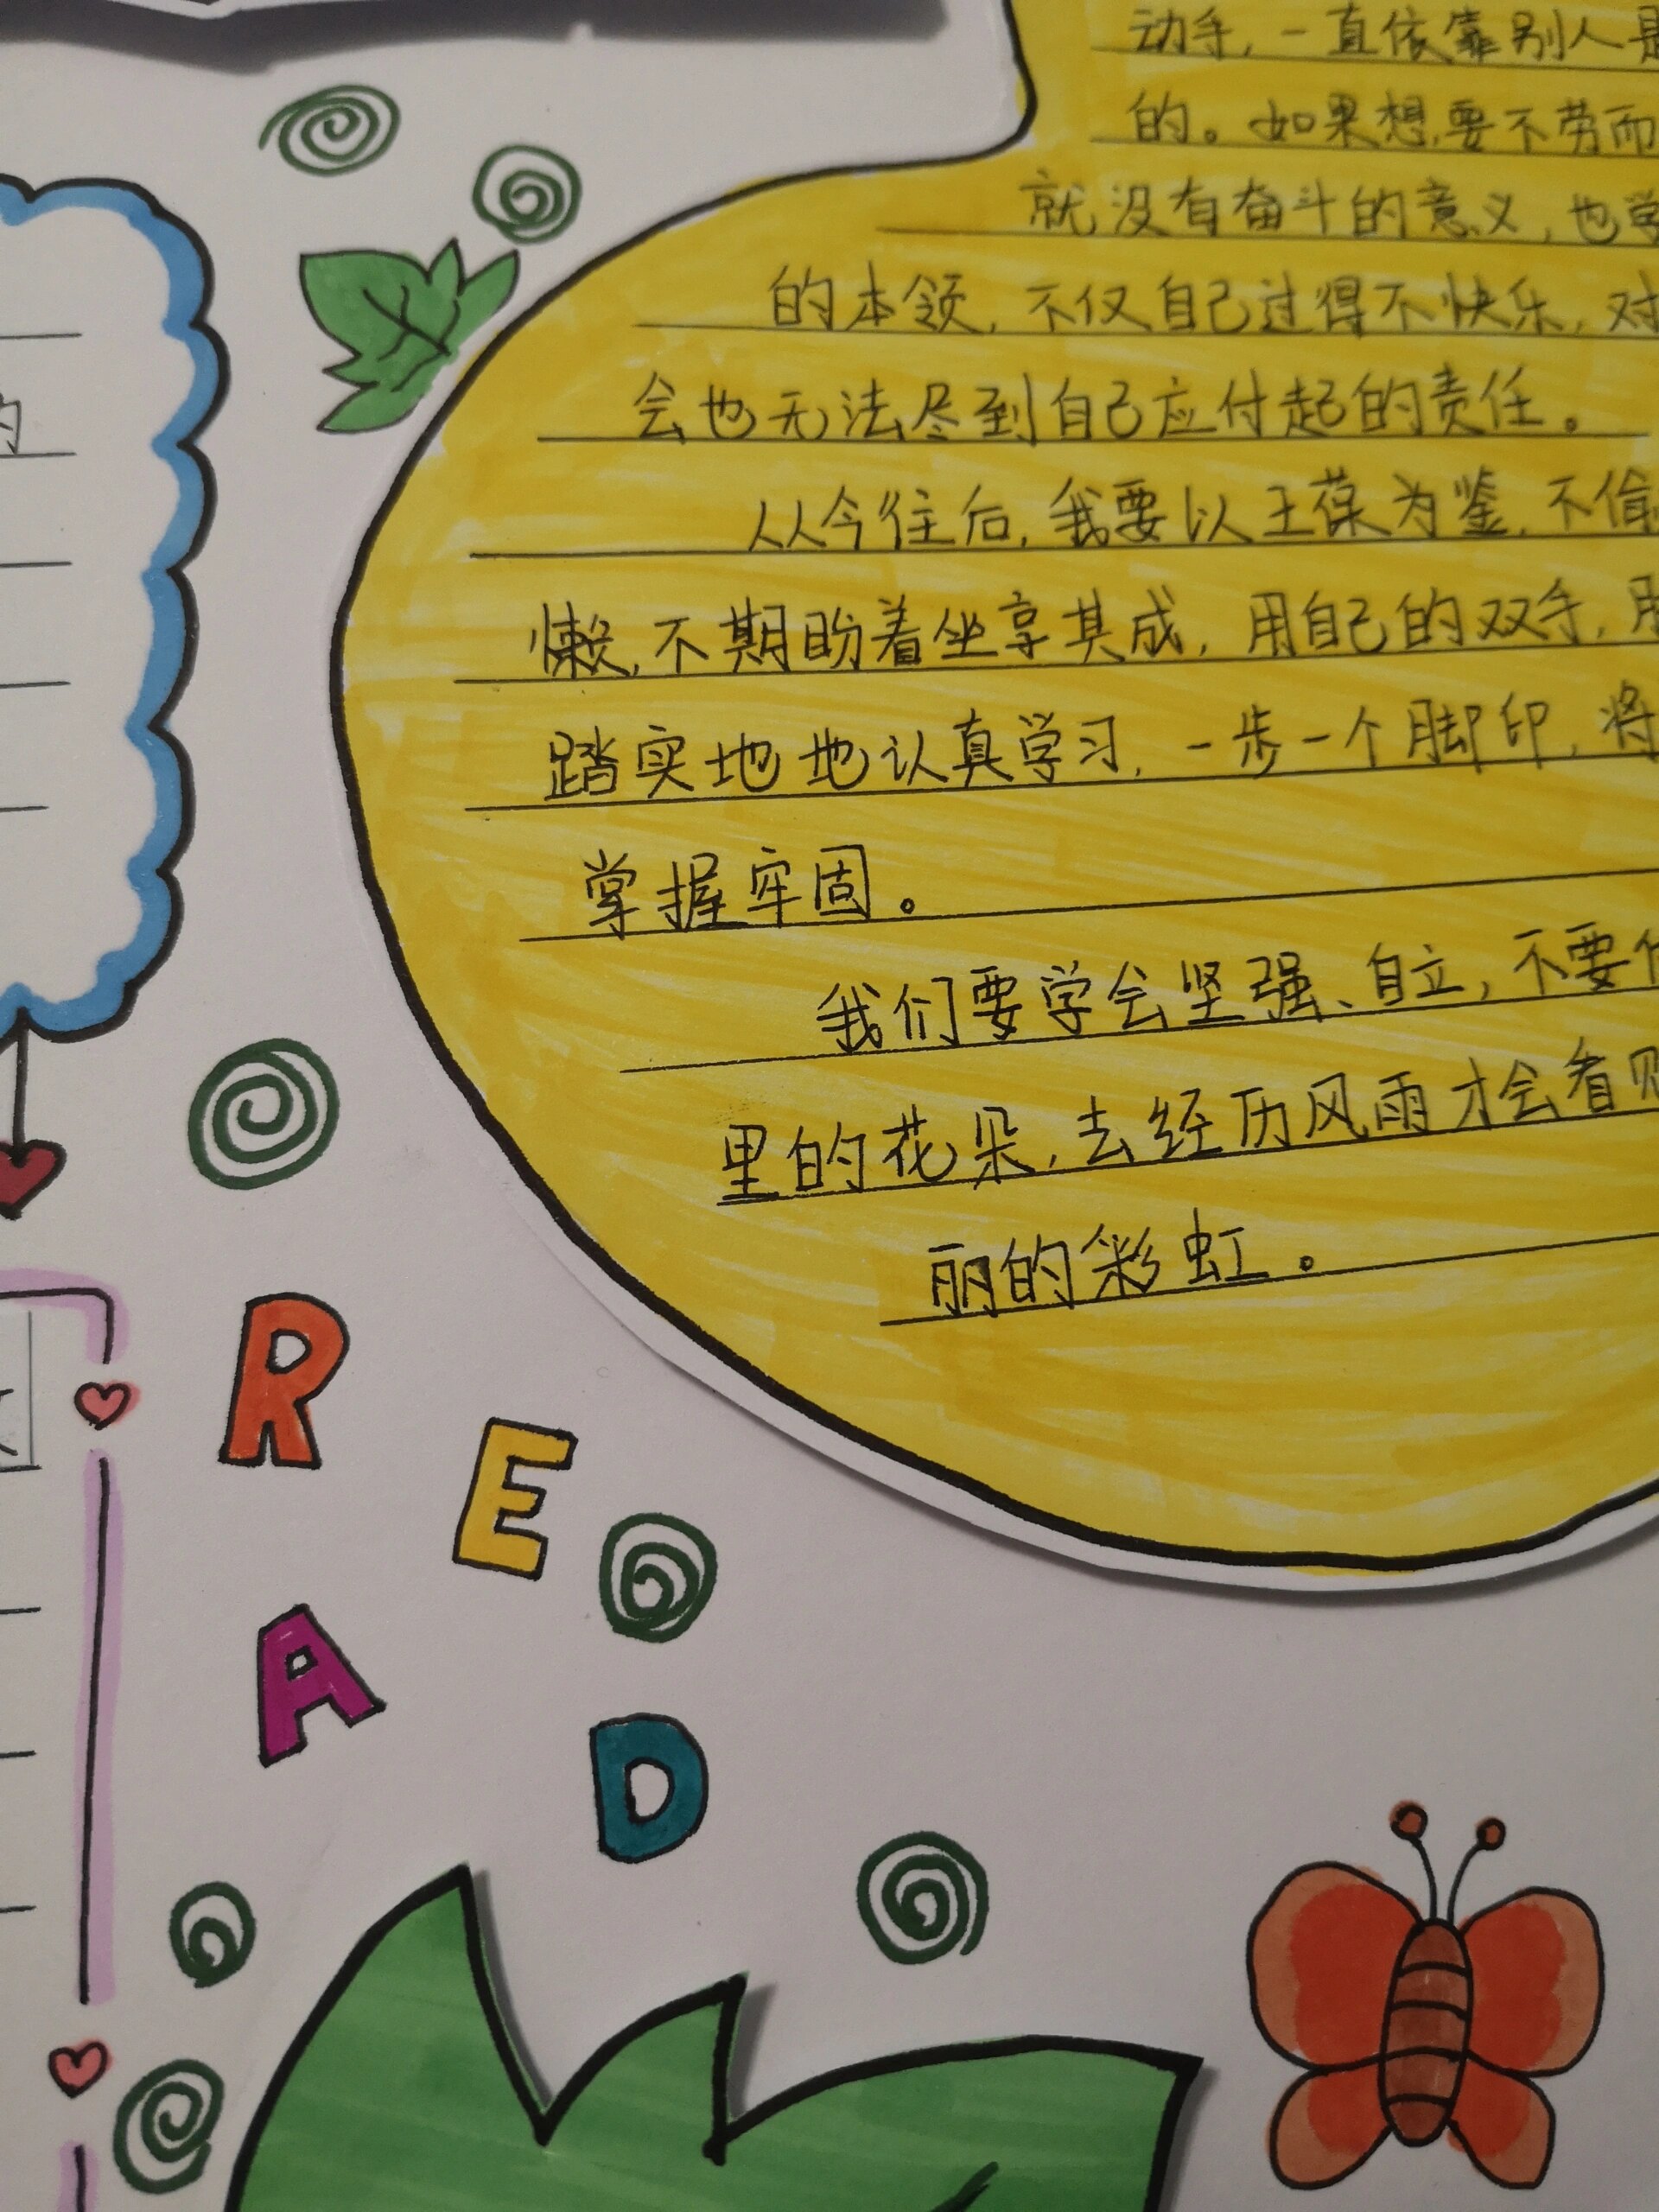 动手，一直依靠别人是
的。如果想要不劳而
就没有奋斗的意义，也学
的本领，不仅自己过得不快乐，对
会也无法尽到自己应付起的责任。
从今往后，我要以王葆为鉴，不偷
懒，不期盼着坐享其成，用自己的双手，脚
踏实地地认真学习，一步一个脚印，将
掌握牢固。
我们要学会坚强、自立，不要做
里的花朵，去经历风雨才会看见
丽的彩虹。
的
R
E
A
D